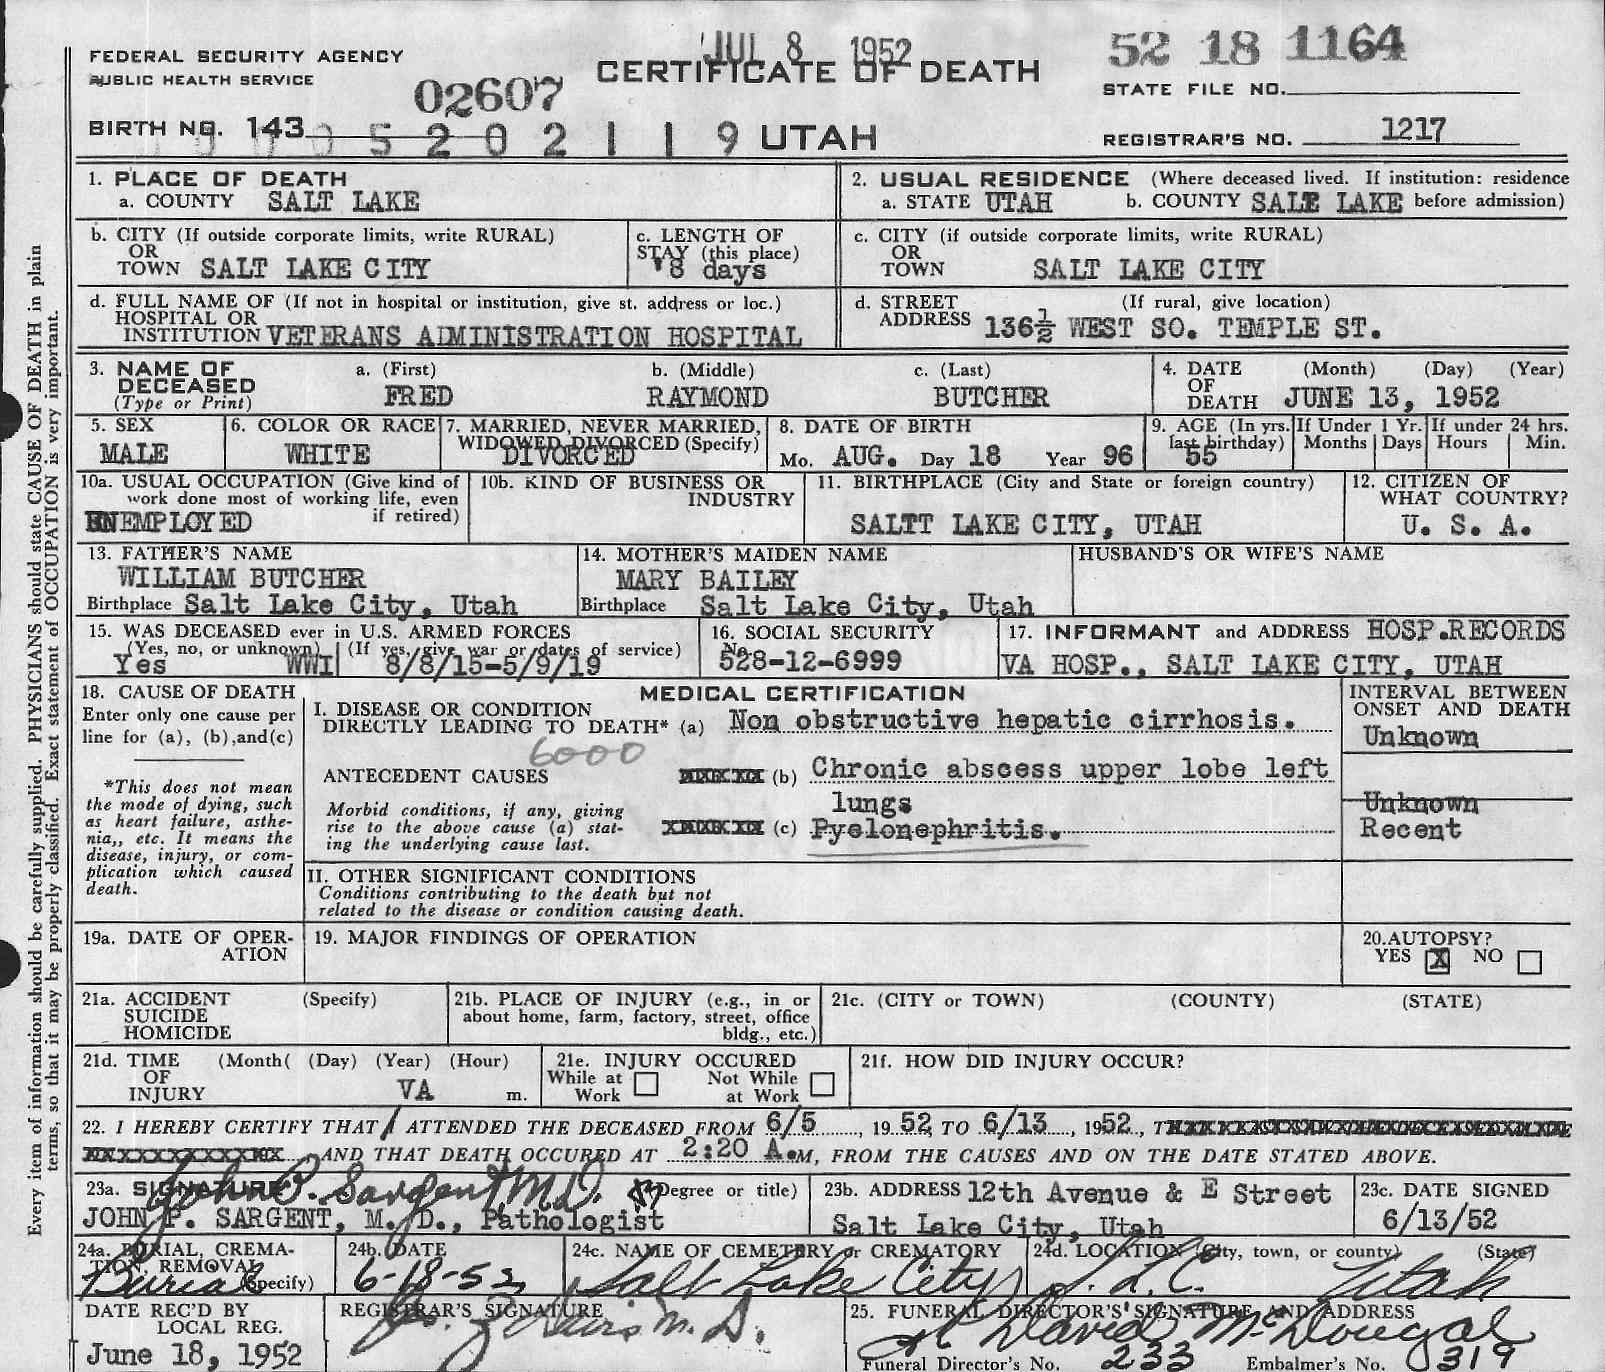 JUL 8 1952
52 18 1164
FEDERAL SECURITY AGENCY
PUBLIC HEALTH SERVICE
CERTIFICATE OF DEATH
STATE FILE NO.
02607
BIRTH NO. 143
5 2 0 2 1 1 9 UTAH
REGISTRAR'S NO. 1217
1. PLACE OF DEATH
a. COUNTY SALT LAKE
2. USUAL RESIDENCE (Where deceased lived. If institution: residence
a. STATE UTAH b. COUNTY SALE LAKE before admission)
b. CITY (If outside corporate limits, write RURAL)
OR
TOWN SALT LAKE CITY
c. LENGTH OF
STAY (this place)
8 days
c. CITY (if outside corporate limits, write RURAL)
OR
TOWN SALT LAKE CITY
d. FULL NAME OF (If not in hospital or institution, give st. address or loc.)
HOSPITAL OR
INSTITUTION VETERANS ADMINISTRATION HOSPITAL
d. STREET (If rural, give location)
ADDRESS 136½ WEST SO. TEMPLE ST.
3. NAME OF
DECEASED
(Type or Print)
a. (First)
FRED
b. (Middle)
RAYMOND
c. (Last)
BUTCHER
4. DATE (Month) (Day) (Year)
OF
DEATH JUNE 13, 1952
5. SEX
MALE
6. COLOR OR RACE
WHITE
7. MARRIED, NEVER MARRIED,
WIDOWED, DIVORCED (Specify)
DIVORCED
8. DATE OF BIRTH
Mo. AUG. Day 18 Year 96
9. AGE (In yrs.
last birthday)
55
If Under 1 Yr.
Months Days
If under 24 hrs.
Hours Min.
10a. USUAL OCCUPATION (Give kind of
work done most of working life, even
if retired)
UNEMPLOYED
10b. KIND OF BUSINESS OR
INDUSTRY
11. BIRTHPLACE (City and State or foreign country)
SALTT LAKE CITY, UTAH
12. CITIZEN OF
WHAT COUNTRY?
U. S. A.
13. FATHER'S NAME
WILLIAM BUTCHER
Birthplace Salt Lake City, Utah
14. MOTHER'S MAIDEN NAME
MARY BAILEY
Birthplace Salt Lake City, Utah
HUSBAND'S OR WIFE'S NAME
15. WAS DECEASED ever in U.S. ARMED FORCES
(Yes, no, or unknown) (If yes, give war or dates of service)
Yes WWI 8/8/15-5/9/19
16. SOCIAL SECURITY
No.
528-12-6999
17. INFORMANT and ADDRESS HOSP.RECORDS
VA HOSP., SALT LAKE CITY, UTAH
18. CAUSE OF DEATH
Enter only one cause per
line for (a), (b),and(c)
*This does not mean
the mode of dying, such
as heart failure, asthe-
nia,, etc. It means the
disease, injury, or com-
plication which caused
death.
MEDICAL CERTIFICATION
I. DISEASE OR CONDITION
DIRECTLY LEADING TO DEATH* (a) Non obstructive hepatic cirrhosis.
6000
ANTECEDENT CAUSES
(b) Chronic abscess upper lobe left
lungs
Morbid conditions, if any, giving
rise to the above cause (a) stat-
ing the underlying cause last.
(c) Pyelonephritis.
INTERVAL BETWEEN
ONSET AND DEATH
Unknown
Unknown
Recent
II. OTHER SIGNIFICANT CONDITIONS
Conditions contributing to the death but not
related to the disease or condition causing death.
19a. DATE OF OPER-
ATION
19. MAJOR FINDINGS OF OPERATION
20.AUTOPSY?
YES X NO
21a. ACCIDENT (Specify)
SUICIDE
HOMICIDE
21b. PLACE OF INJURY (e.g., in or
about home, farm, factory, street, office
bldg., etc.)
21c. (CITY or TOWN) (COUNTY) (STATE)
21d. TIME (Month( (Day) (Year) (Hour)
OF
INJURY VA m.
21e. INJURY OCCURED
While at Work
Not While at Work
21f. HOW DID INJURY OCCUR?
22. I HEREBY CERTIFY THAT I ATTENDED THE DECEASED FROM 6/5, 1952, TO 6/13, 1952,
AND THAT DEATH OCCURED AT 2:20 A.M, FROM THE CAUSES AND ON THE DATE STATED ABOVE.
23a. SIGNATURE (Degree or title)
John P. Sargent M.D.
JOHN P. SARGENT, M. D., Pathologist
23b. ADDRESS 12th Avenue & E Street
Salt Lake City, Utah
23c. DATE SIGNED
6/13/52
24a. BURIAL, CREMA-
TION, REMOVAL
(Specify)
Burial
24b. DATE
6-18-52
24c. NAME OF CEMETERY or CREMATORY
Salt Lake City
24d. LOCATION (City, town, or county) (State)
S.L.C. Utah
DATE REC'D BY
LOCAL REG.
June 18, 1952
REGISTRAR'S SIGNATURE
25. FUNERAL DIRECTOR'S SIGNATURE AND ADDRESS
David McDougal
Funeral Director's No. 233 Embalmer's No. 319
Every item of information should be carefully supplied. PHYSICIANS should state CAUSE OF DEATH in plain
terms, so that it may be properly classified. Exact statement of OCCUPATION is very important.